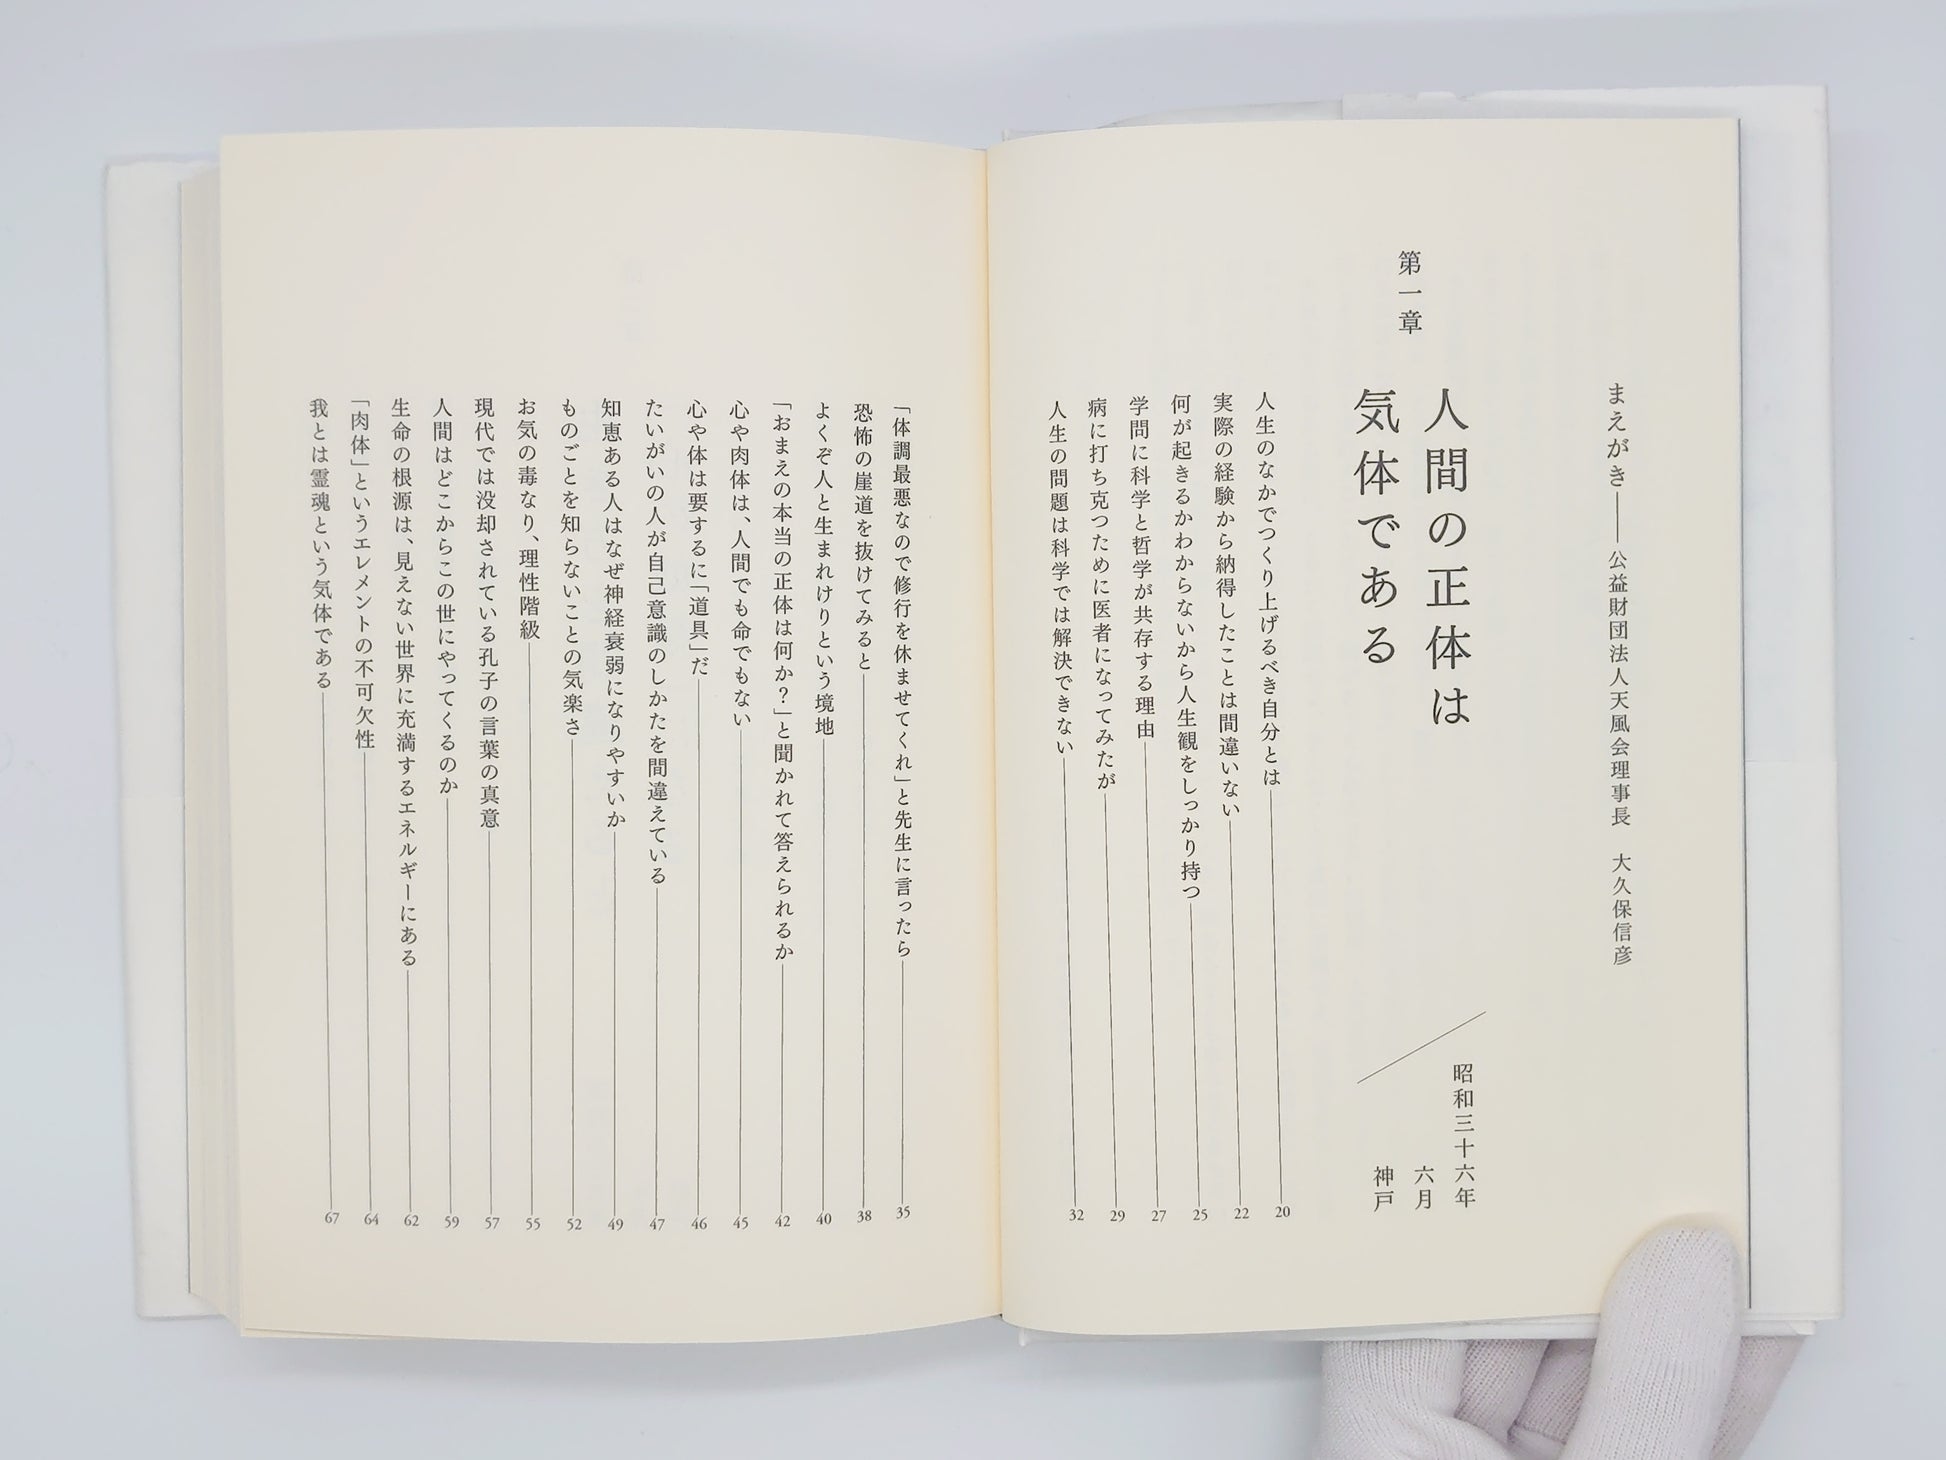 まえがき――公益財団法人天風会理事長　大久保信彦
第一章
人間の正体は
気体である
昭和三十六年
六月
神戸
人生のなかでつくり上げるべき自分とは――20
実際の経験から納得したことは間違いない――22
何が起きるかわからないから人生観をしっかり持つ――25
学問に科学と哲学が共存する理由――27
病に打ち克つために医者になってみたが――29
人生の問題は科学では解決できない――32
「体調最悪なので修行を休ませてくれ」と先生に言ったら――35
恐怖の崖道を抜けてみると――38
よくぞ人と生まれけりという境地――40
「おまえの本当の正体は何か？」と聞かれて答えられるか――42
心や肉体は、人間でも命でもない――45
心や体は要するに「道具」だ――46
たいがいの人が自己意識のしかたを間違えている――47
知恵ある人はなぜ神経衰弱になりやすいか――49
ものごとを知らないことの気楽さ――52
お気の毒なり、理性階級――55
現代では没却されている孔子の言葉の真意――57
人間はどこからこの世にやってくるのか――59
生命の根源は、見えない世界に充満するエネルギーにある――62
「肉体」というエレメントの不可欠性――64
我とは霊魂という気体である――67